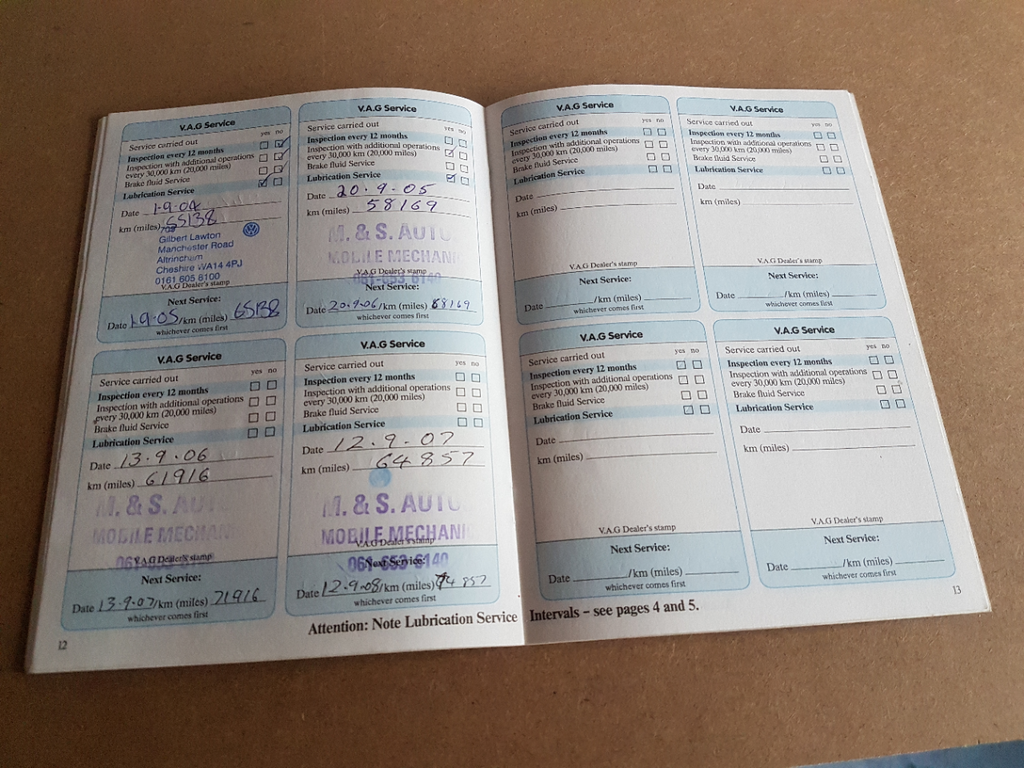 V.A.G Service
Service carried out
yes no
Inspection every 12 months
Inspection with additional operations
every 30,000 km (20,000 miles)
Brake fluid Service
Lubrication Service
Date 1-9-04
km (miles)
Gilbert Lawton
Manchester Road
Altrincham
Cheshire WA14 4PJ
0161 605 8100
V.A.G Dealer's stamp
Next Service:
Date 1-9-05/km (miles) 65138
whichever comes first
V.A.G Service
Service carried out
yes no
Inspection every 12 months
Inspection with additional operations
every 30,000 km (20,000 miles)
Brake fluid Service
Lubrication Service
Date 20.9.05
km (miles) 58169
M. & S. AUTO
MOBILE MECHANI
V.A.G Dealer's stamp
Next Service:
Date 20.9.06/km (miles) 68169
whichever comes first
V.A.G Service
Service carried out
yes no
Inspection every 12 months
Inspection with additional operations
every 30,000 km (20,000 miles)
Brake fluid Service
Lubrication Service
Date 13.9.06
km (miles) 61916
M. & S. AUTO
MOBILE MECHANI
V.A.G Dealer's stamp
Next Service:
Date 13.9.07/km (miles) 71916
whichever comes first
V.A.G Service
Service carried out
yes no
Inspection every 12 months
Inspection with additional operations
every 30,000 km (20,000 miles)
Brake fluid Service
Lubrication Service
Date 12.9.07
km (miles) 64857
M. & S. AUTO
MOBILE MECHANI
V.A.G Dealer's stamp
061-653 6140
Next Service:
Date 12.9.08/km (miles) 74857
whichever comes first
12
V.A.G Service
Service carried out
yes no
Inspection every 12 months
Inspection with additional operations
every 30,000 km (20,000 miles)
Brake fluid Service
Lubrication Service
Date
km (miles)
V.A.G Dealer's stamp
Next Service:
Date /km (miles)
whichever comes first
V.A.G Service
Service carried out
yes no
Inspection every 12 months
Inspection with additional operations
every 30,000 km (20,000 miles)
Brake fluid Service
Lubrication Service
Date
km (miles)
V.A.G Dealer's stamp
Next Service:
Date /km (miles)
whichever comes first
V.A.G Service
Service carried out
yes no
Inspection every 12 months
Inspection with additional operations
every 30,000 km (20,000 miles)
Brake fluid Service
Lubrication Service
Date
km (miles)
V.A.G Dealer's stamp
Next Service:
Date /km (miles)
whichever comes first
V.A.G Service
Service carried out
yes no
Inspection every 12 months
Inspection with additional operations
every 30,000 km (20,000 miles)
Brake fluid Service
Lubrication Service
Date
km (miles)
V.A.G Dealer's stamp
Next Service:
Date /km (miles)
whichever comes first
Attention: Note Lubrication Service Intervals – see pages 4 and 5.
13